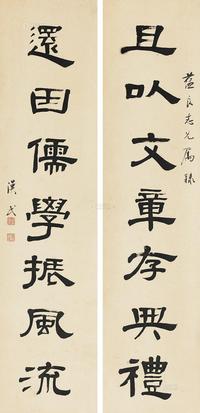 蓝良志兄属隸
且以文章存典禮
還因儒學振風流
漢民